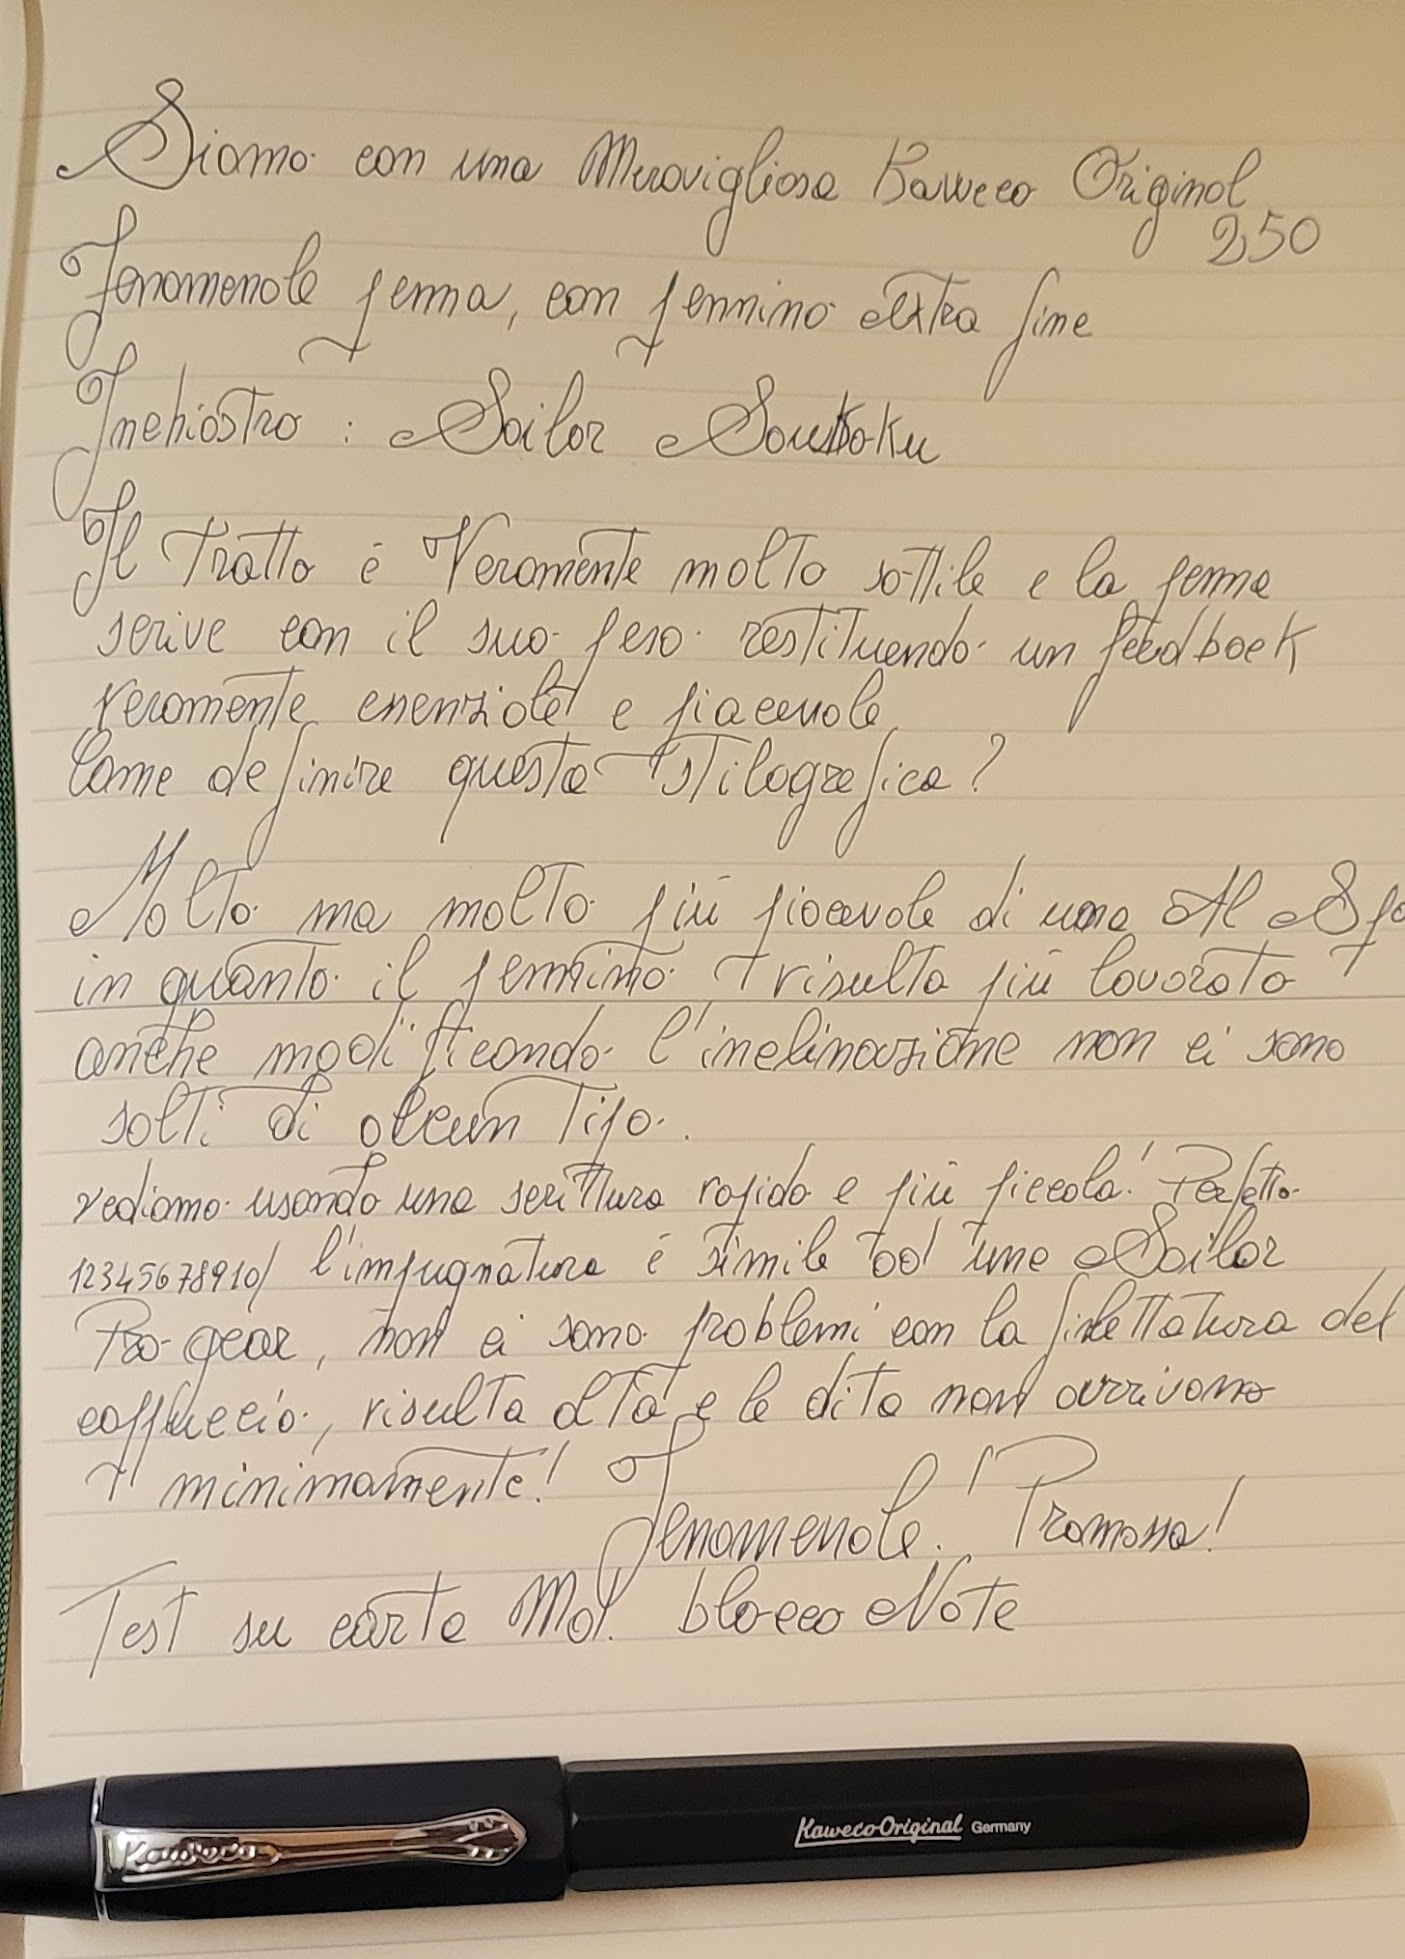 Siamo con una Meravigliosa Kaweco Original
250
Fenomenale penna, con pennino extra fine
Inchiostro : Sailor Souboku
Il tratto è Veramente molto sottile e la penna
scrive con il suo peso restituendo un feedback
veramente essenziale e piacevole
Come definire questa stilografica?
Molto ma molto più piacevole di una Al Spo
in quanto il pennino risulta più lavorato
anche modificando l'inclinazione non ci sono
salti di alcun tipo.
vediamo usando una scrittura rapida e più piccola! Perfetto
12345678910/ l'impugnatura è simile ad una Sailor
Pro-gear, non ci sono problemi con la filettatura del
cappuccio, risulta alta e le dita non arrivano
minimamente!
Fenomenale! Promossa!
Test su carta Mol. blocco Note
Kaweco
Kaweco Original Germany